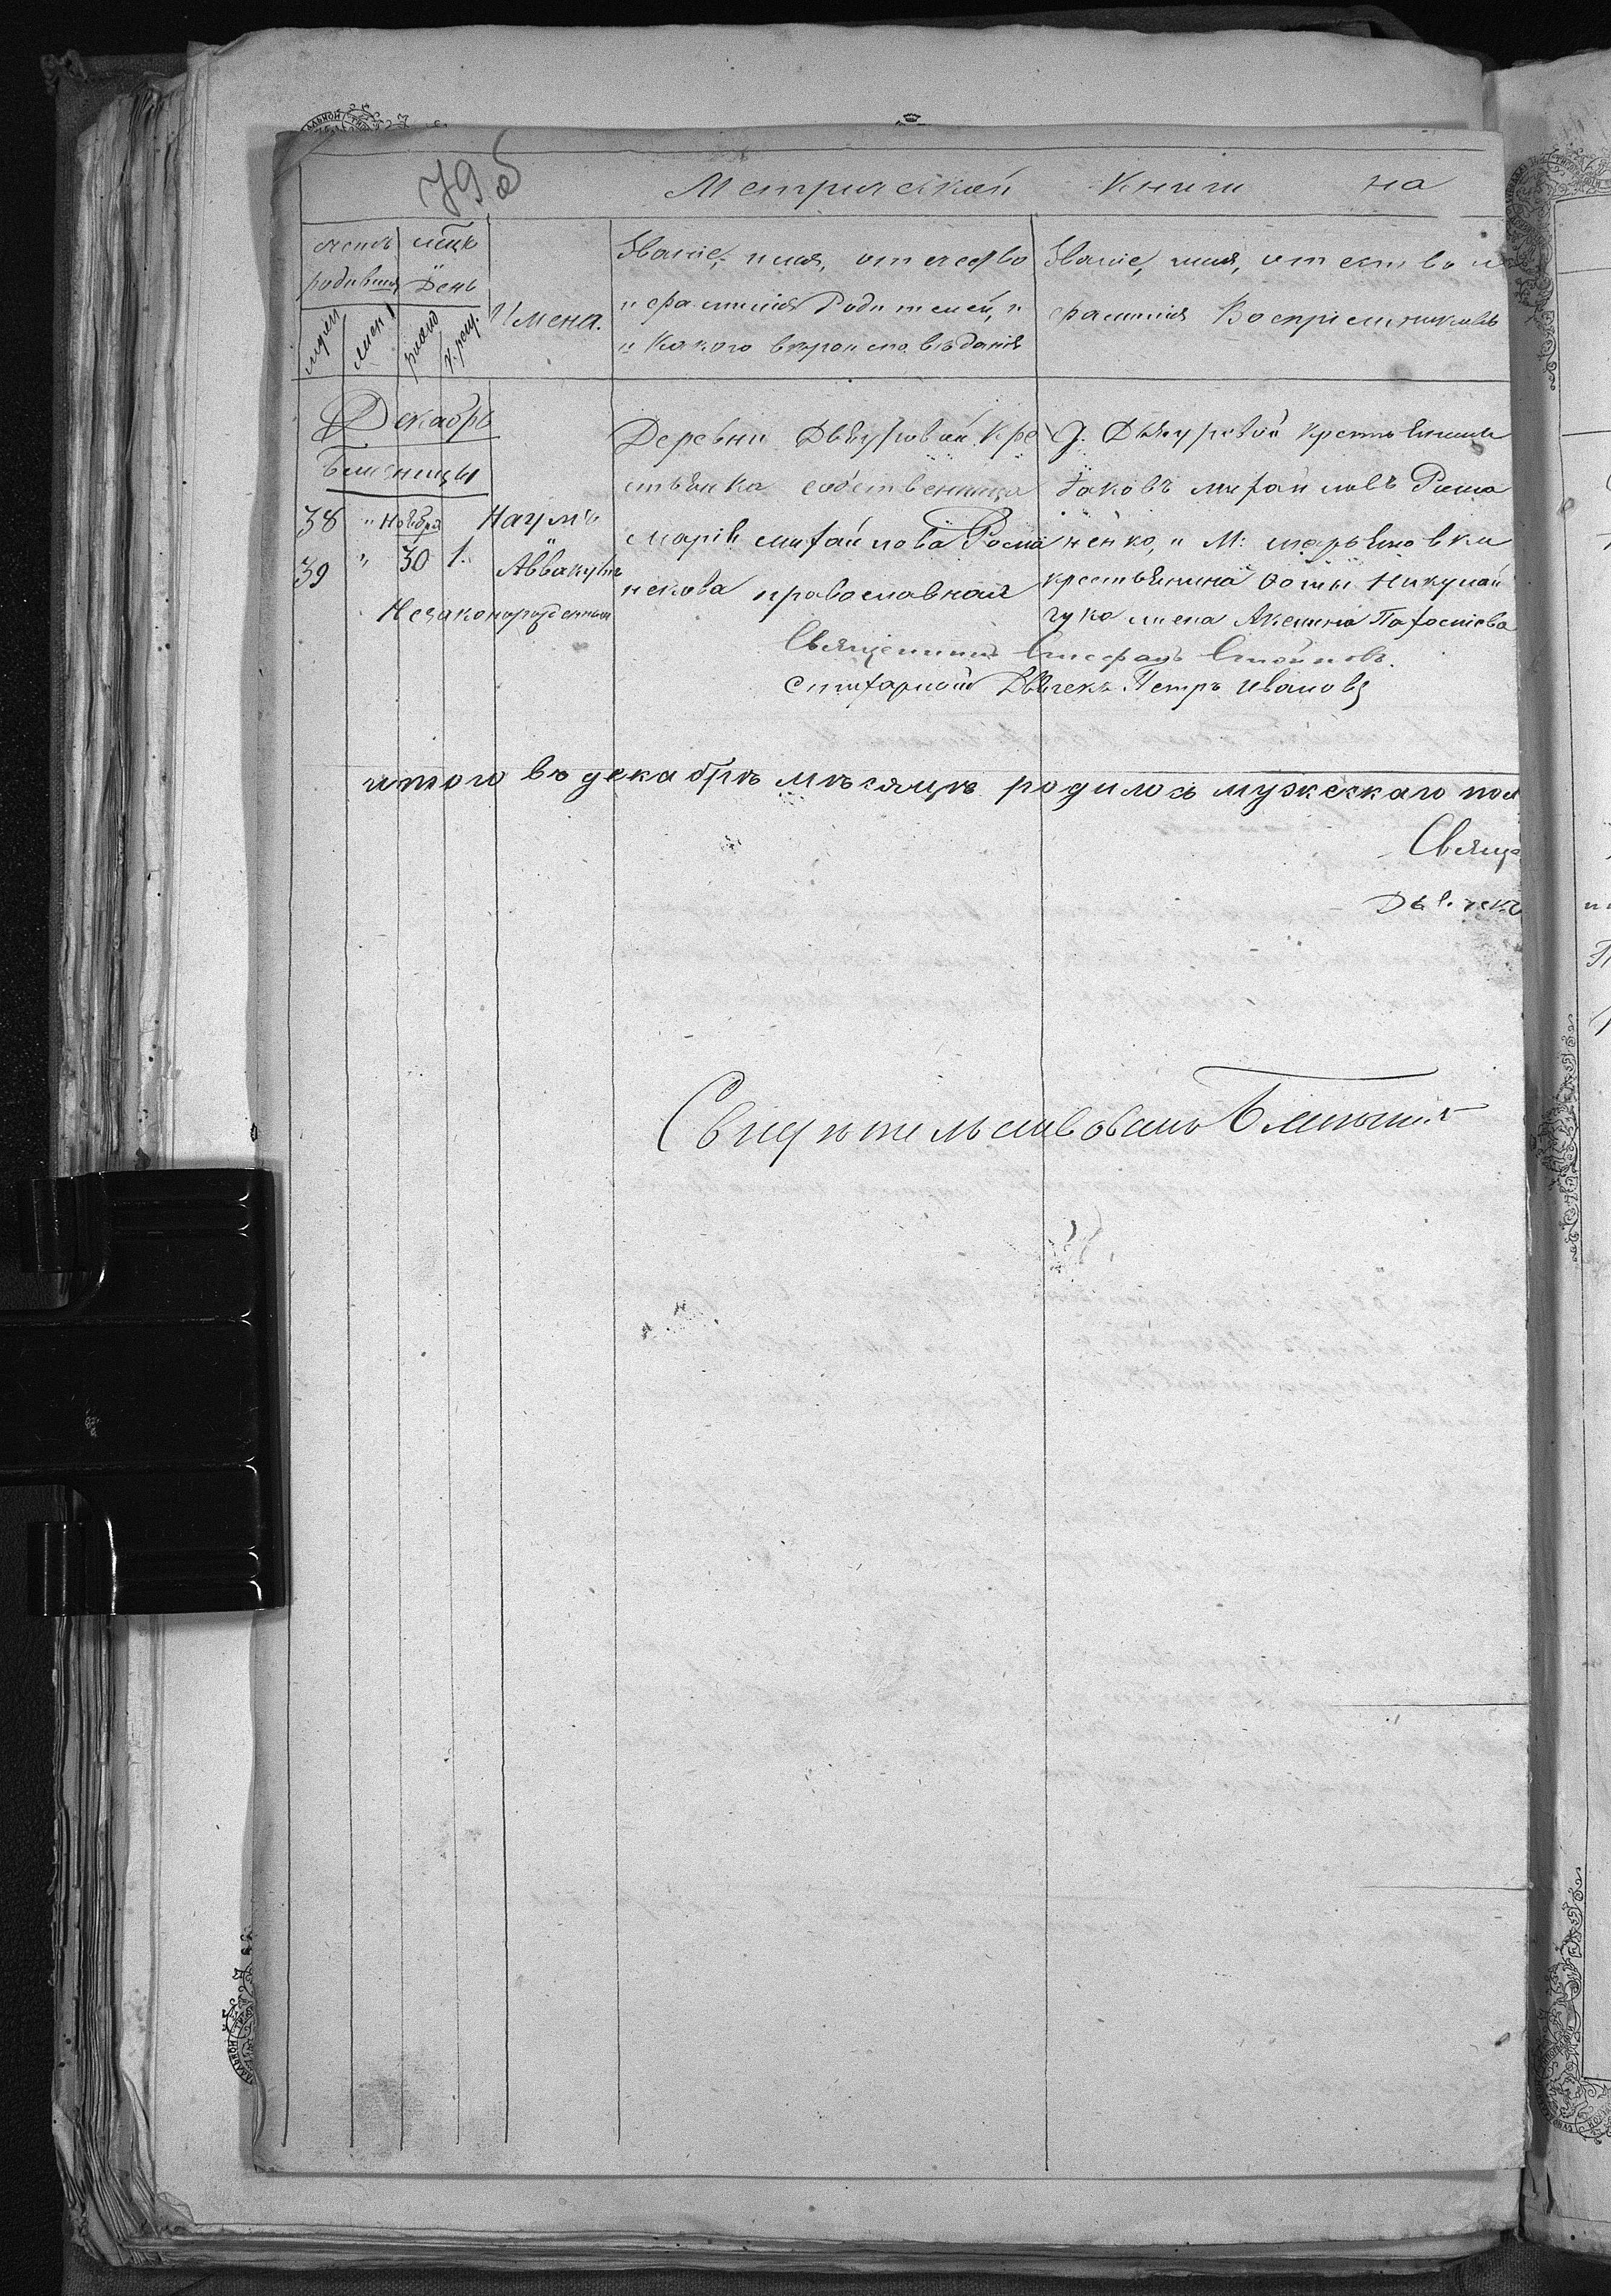 79об
Метрической Книги на
счетъ мсць
родивших День
Имена.
Званіе, имя, отчество
и фамилія Родителей, и
и Какого вѣроисповѣданія
Званіе, имя, отчество и
фамилія Воспріемниковъ
муж
жен
рожд
крещ.
Декабрь
близнецы
38 " Ноября Наумъ
39 " 30 1. Аввакумъ
Незаконорожденныи
Деревни Кре
стьянка собственица
Марія Михайлова Рома
некова православная
Д. крестьянинъ
Яковъ Михайловъ Рома
ненко, и М: Марьяновки
крестьянина Фомы Никулай
чука жена Акелина
Священникъ Стефанъ
Стихарный Дьячекъ Петръ Ивановъ
итого въ декабрѣ мѣсяцѣ родилось мужескаго пол
Свяще
Дьячекъ
Свидѣтельствовалъ